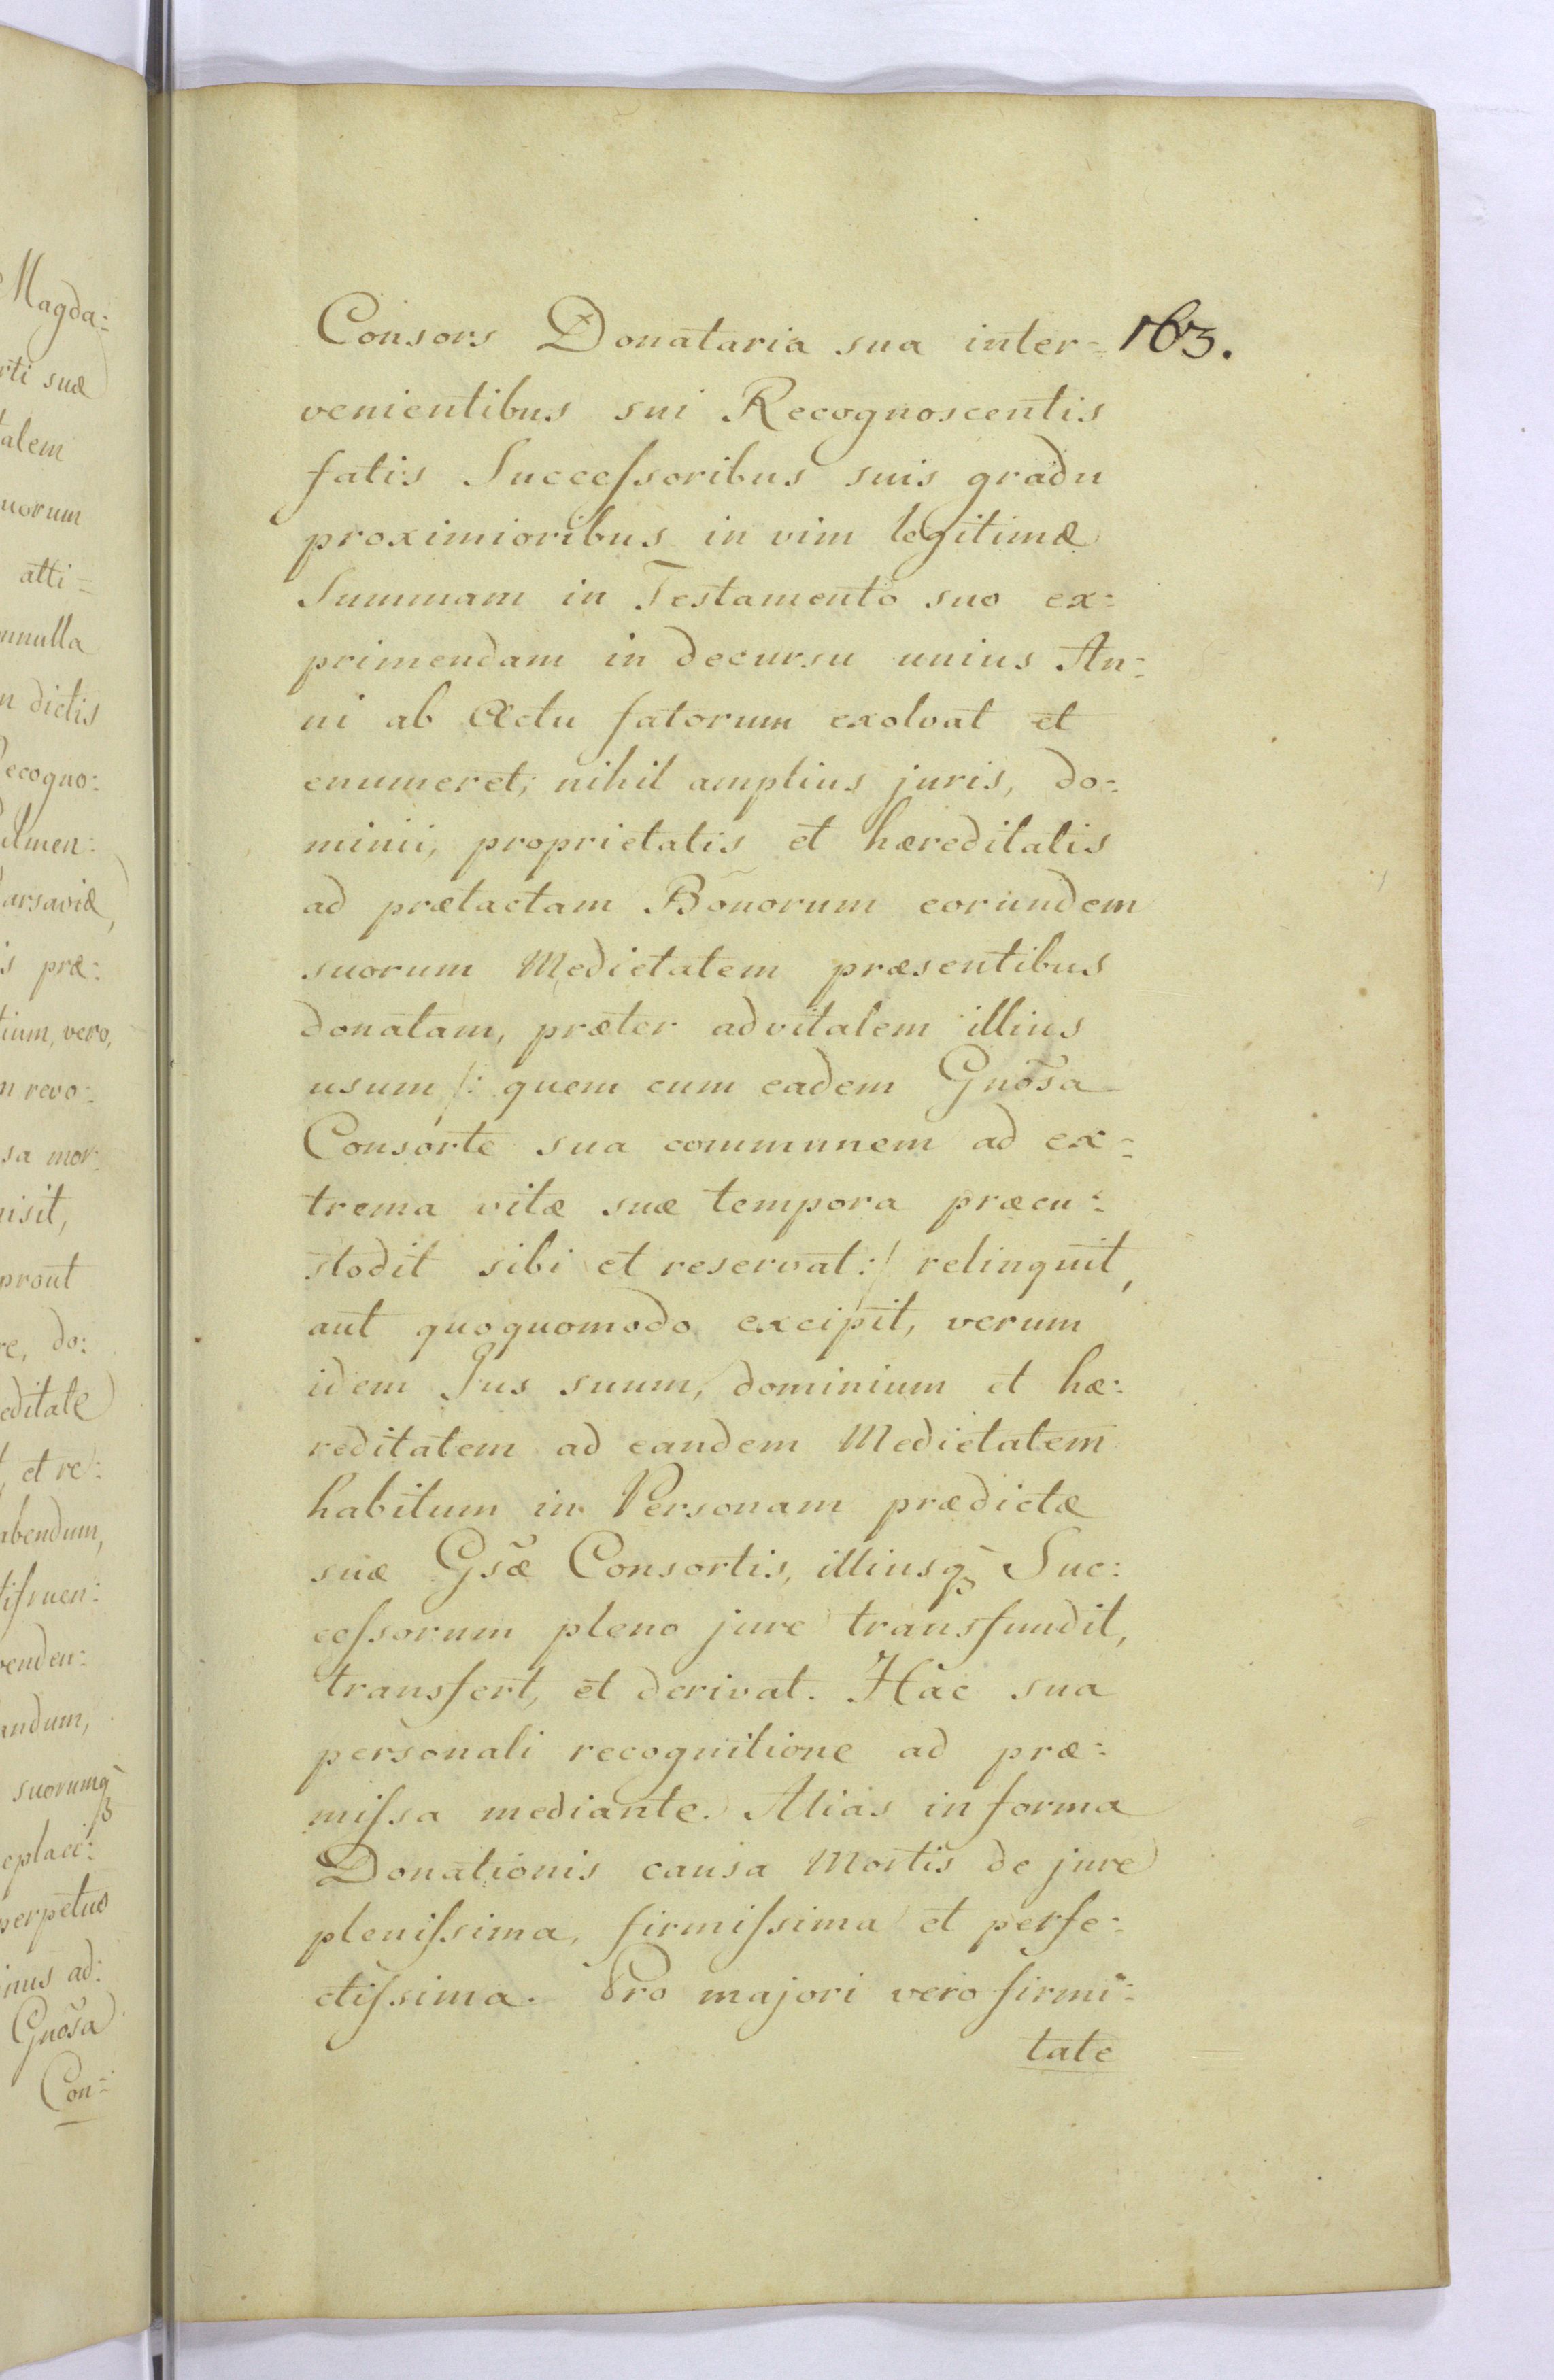 Magda:
rti suæ
talem
uorum
atti=
nnulla
n dictis
ecogno:
ulmen:
arsaviæ,
s præ:
tium, vero,
n revo:
sa mor:
nisit,
prout
re, do:
editate
et re:
abendum,
tifruen:
venden:
andum,
suorumqꝫ
eplaci:
perpetuo
inus ad:
Gnõsa
Con:
Consors Donataria sua inter= 163.
venientibus sui Recognoscentis
fatis Succeſsoribus suis gradu
proximioribus in vim legitimæ
Summam in Testamento suo ex:
primendam in decursu unius An:
ni ab Actu fatorum exolvat et
enumeret; nihil amplius juris, do:
minii, proprietatis et hæreditatis
ad prætactam Bonorum eorundem
suorum Medietatem præsentibus
donatam, præter advitalem illius
usum /: quem cum eadem Gnõsa
Consorte sua communem ad ex:
trema vitæ suæ tempora præcu:
stodit sibi et reservat :/ relinquit,
aut quoquomodo excipit, verum
idem Jus suum, dominium et hæ:
reditatem ad eandem Medietatem
habitum in Personam prædictæ
suæ Gsæ̃ Consortis, illiusqꝫ Suc:
ceſsorum pleno jure transfundit,
transfert, et derivat. Hac sua
personali recognitione ad præ:
miſsa mediante. Alias in forma
Donationis causa Mortis de jure
pleniſsima, firmiſsima et perfe:
ctiſsima. Pro majori vero firmi:
tate